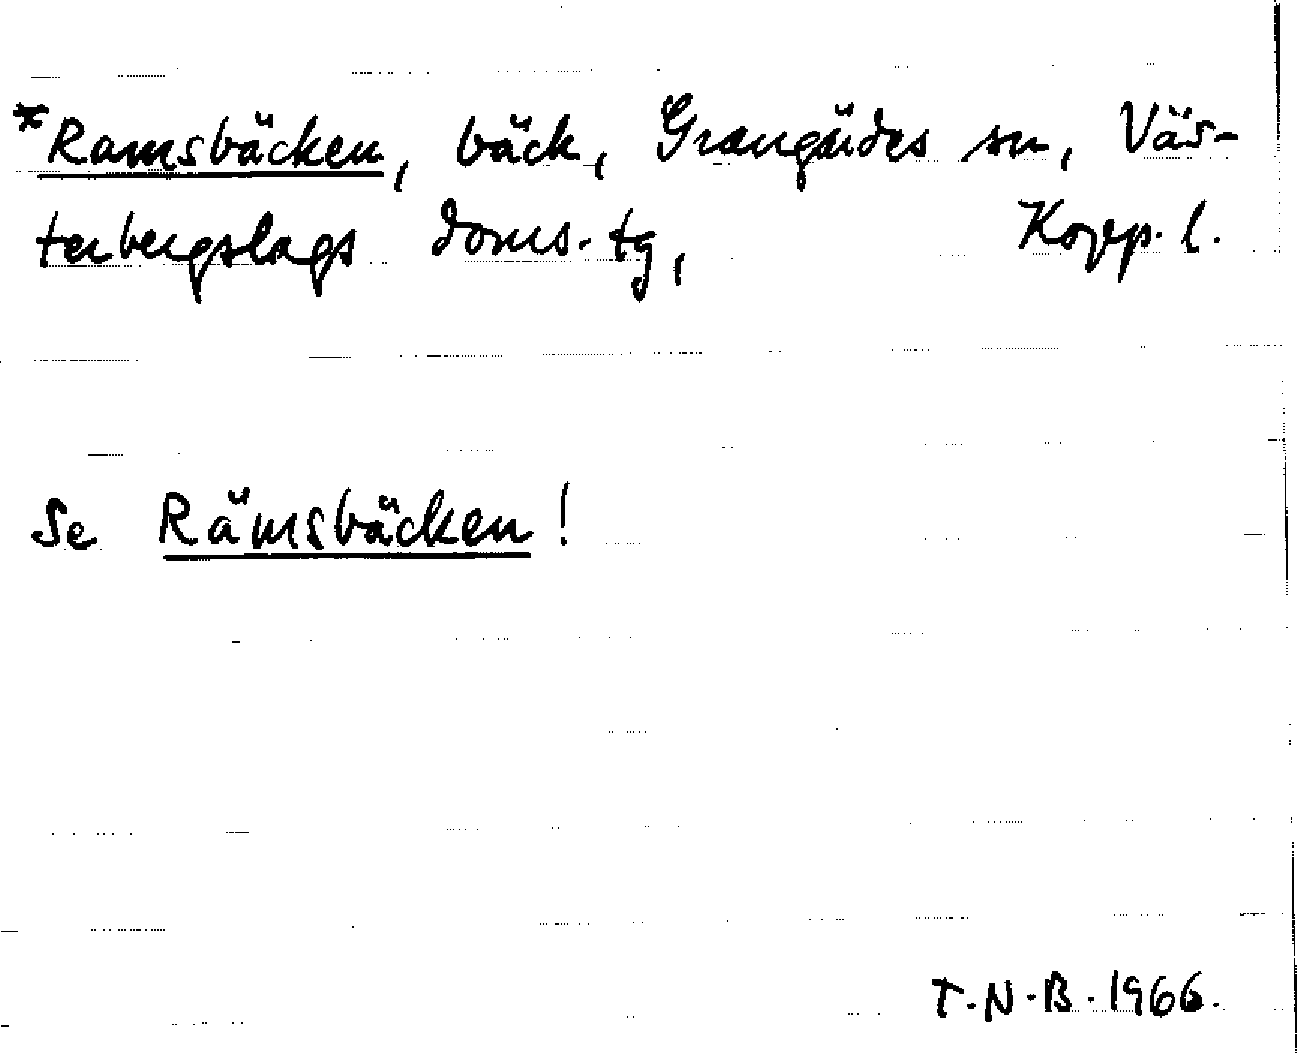 *Ramsbäcken, bäck, Grangärdes sn, Väs-
terbergslags doms. tg, Kopp. l.
Se Rämsbäcken!
T.N.B. 1966.